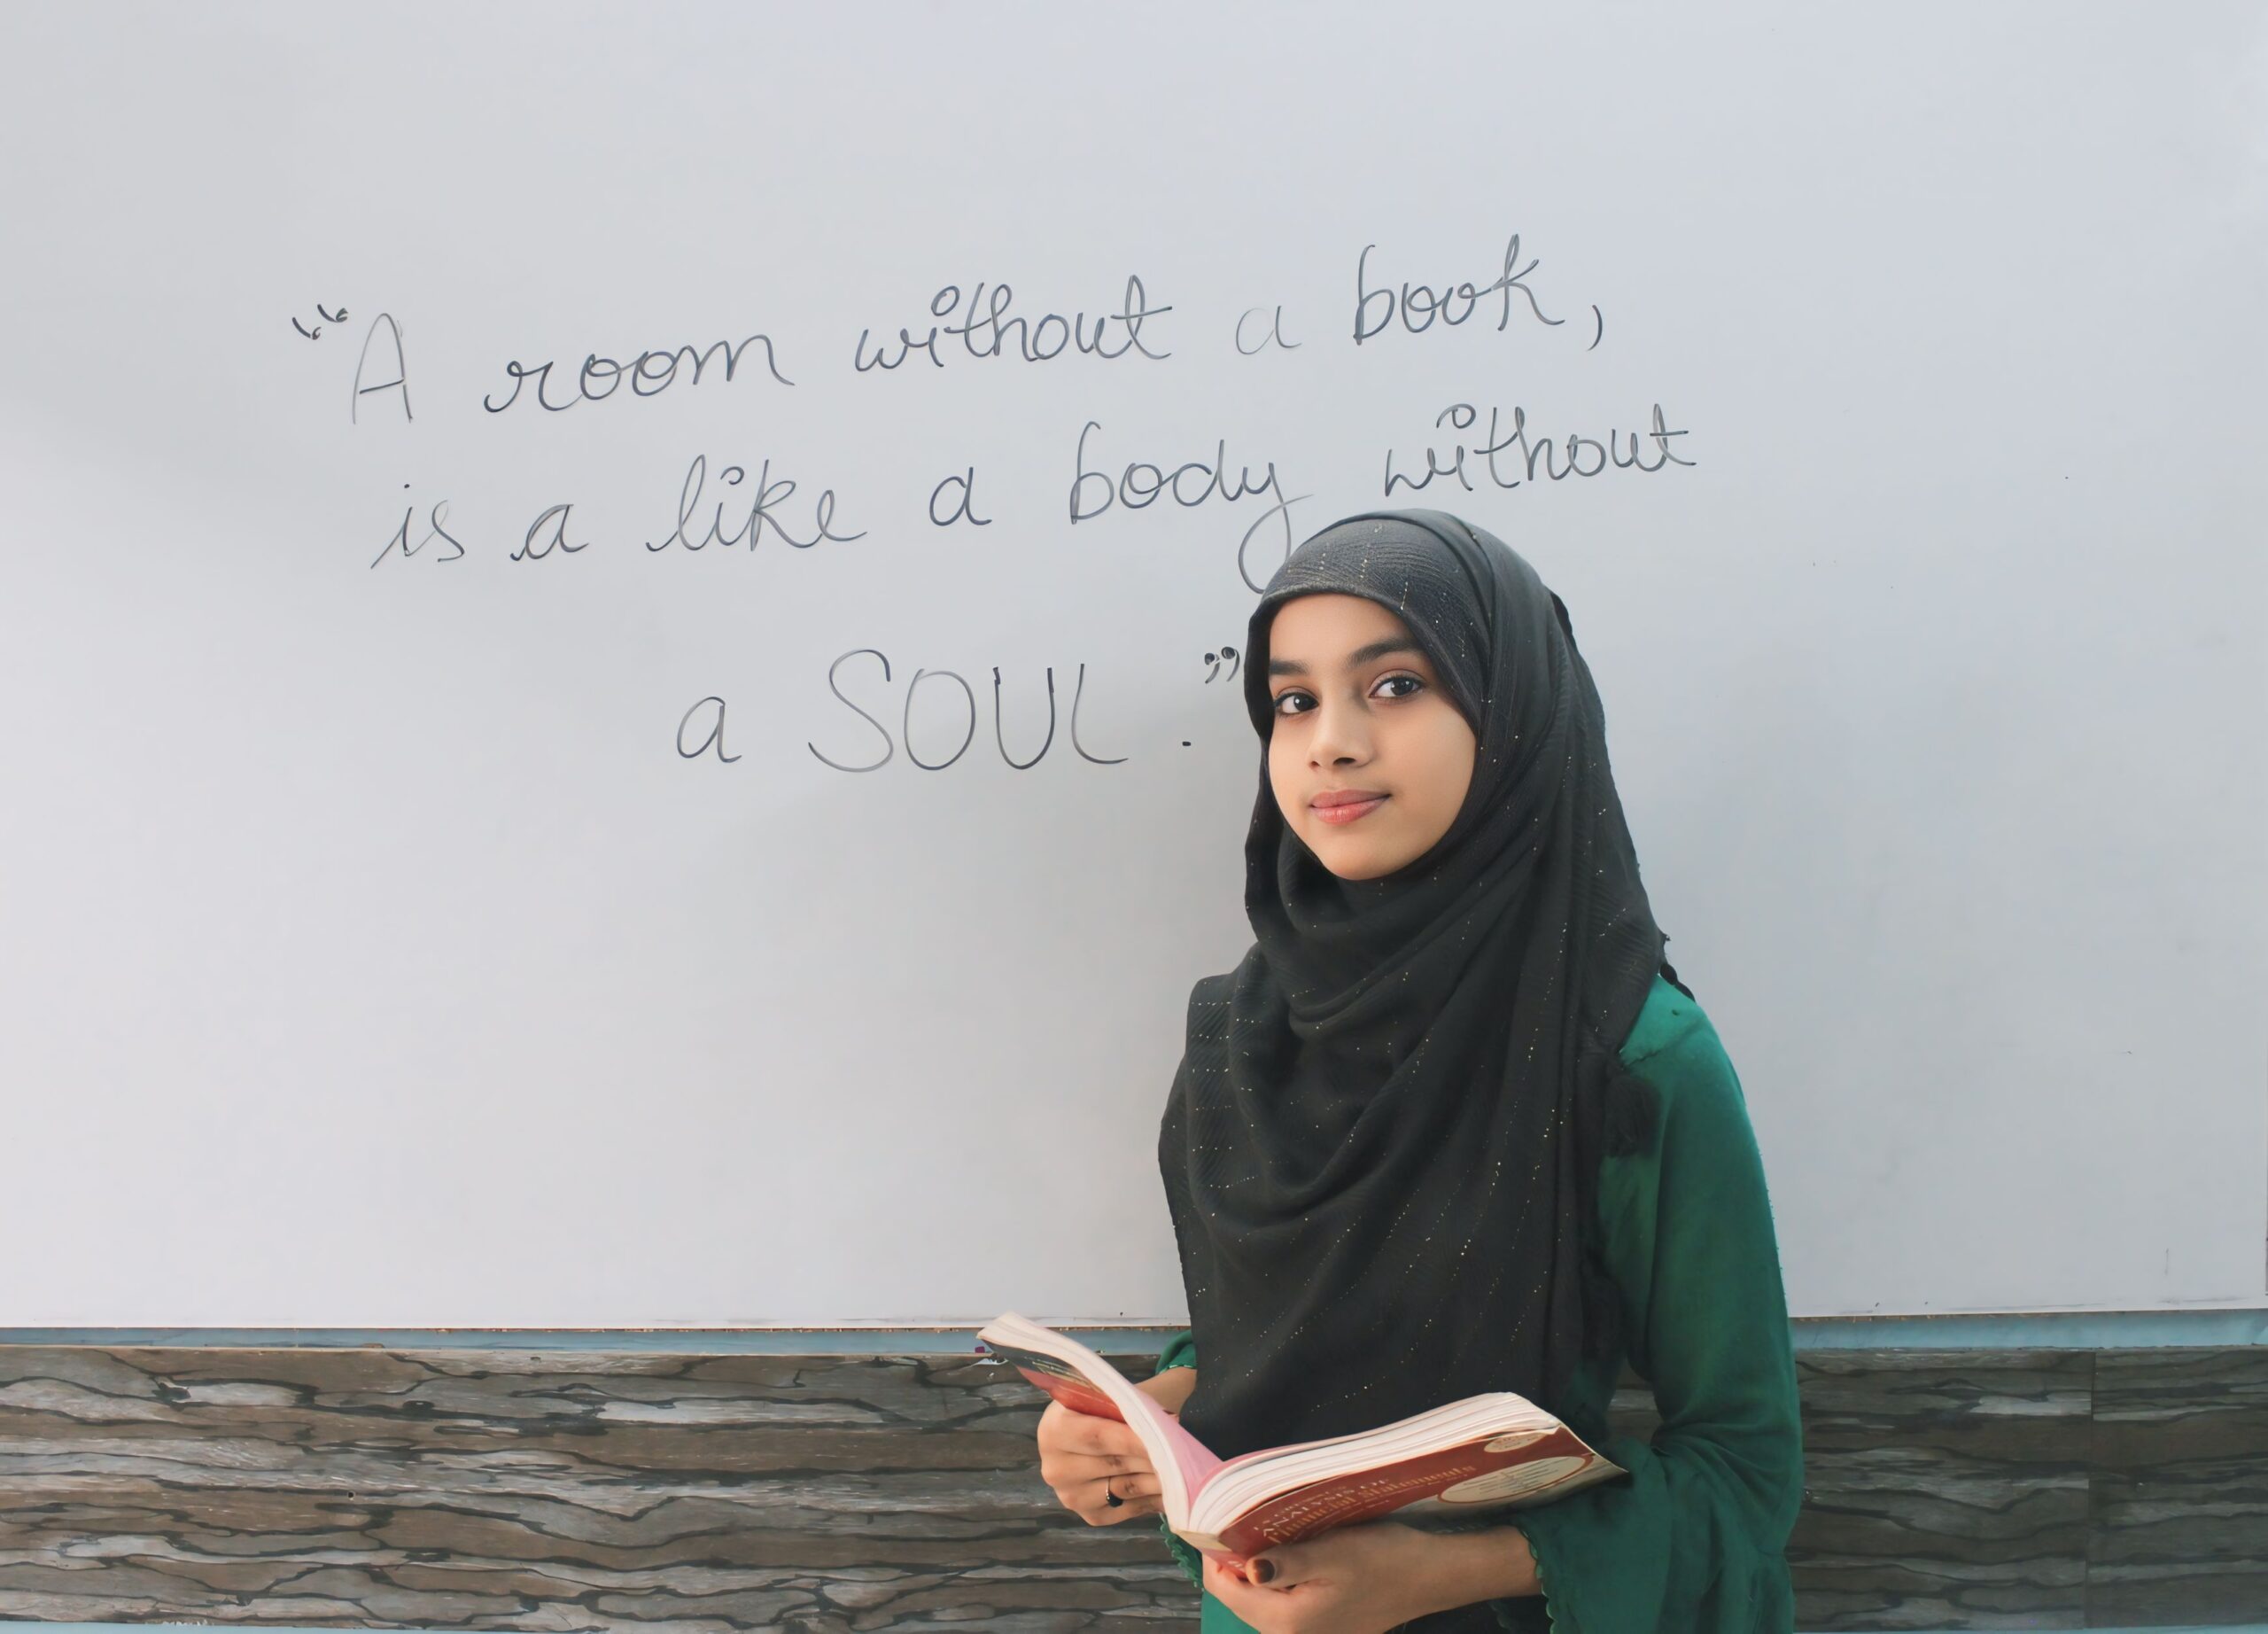 “A room without a book,
is a like a body without
a SOUL.”
ANALYSIS OF
Financial Statements